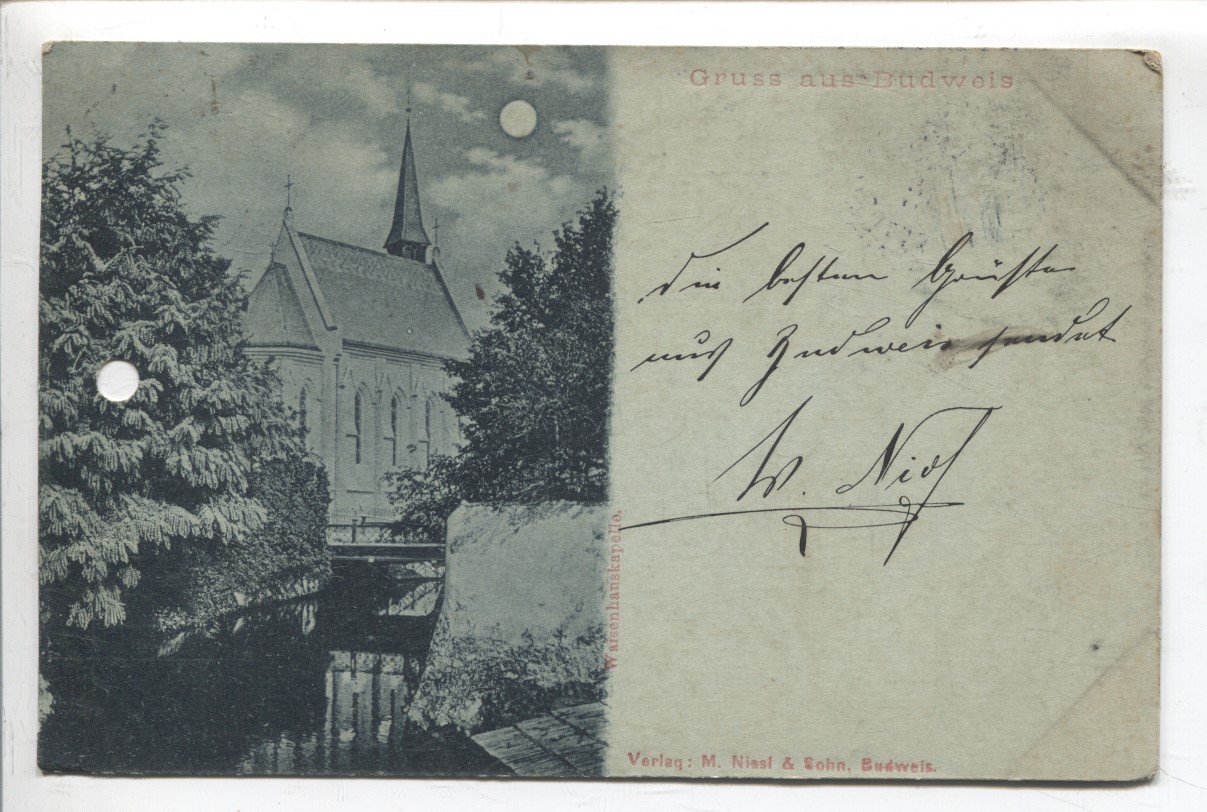 Gruss aus Budweis
Die besten Grüsse
aus Budweis sendet
W.
Waisenhauskapelle.
Verlag: M. Nissl & Sohn, Budweis.